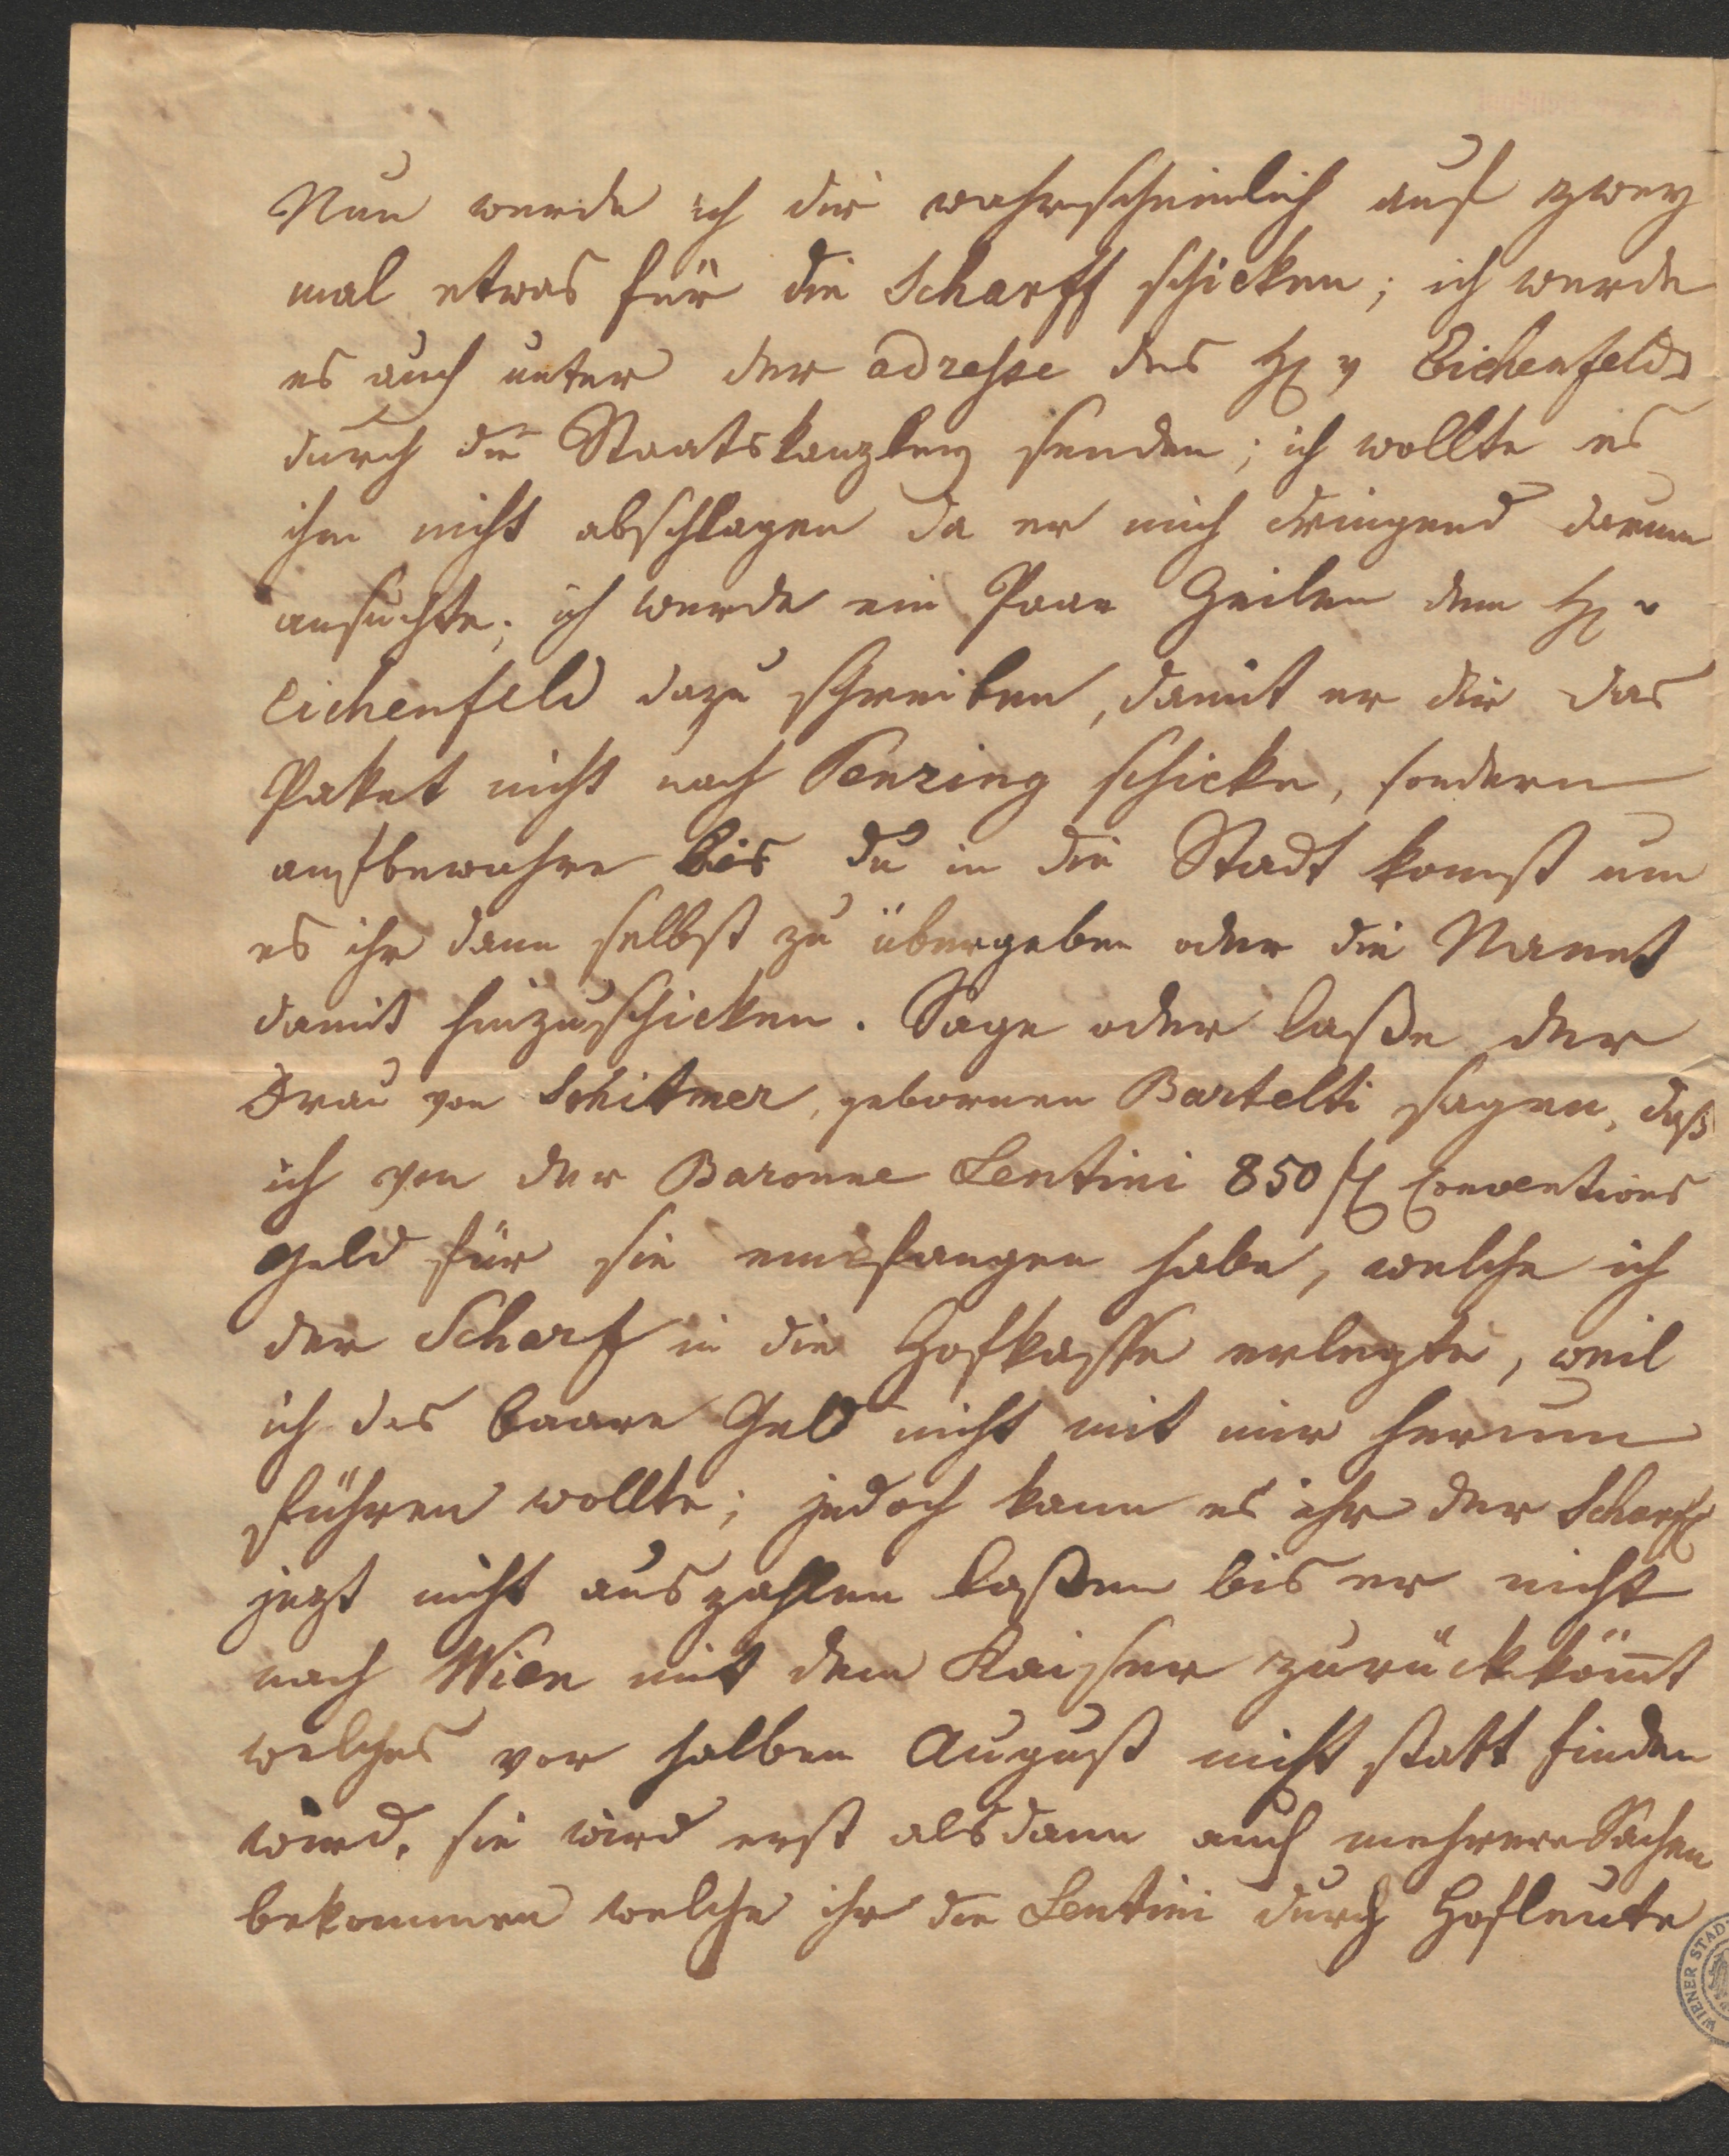 Nun werde ich dir wahrscheinlich auf zwey
mal etwas für die Scharff schicken; ich werde
es auch unter der adresse des H: v Eichenfeld
durch die Staatskanzley senden; ich wollte es
ihm nicht abschlagen da er mich dringend darum
ansuchte; ich werde ein Paar Zeilen dem H: v
Eichenfeld dazu schreiben, damit er dir das
Paket nicht nach Penzing schicke, sondern
aufbewahre bis du in die Stadt komst um
es ihr dann selbst zu übergeben oder die Nanet
damit hinzuschicken. Sage oder laße der
Frau von Schitmer, gebornen Bartelti sagen, daß
ich von der Baronne Lentini 850 f Conventions
Geld für sie empfangen habe, welche ich
der Scharf in die Hofkasse erlegte, weil
ich das baare Geld nicht mit mir herum
führen wollte; jedoch kann es ihr der Scharff
jezt nicht auszahlen laßen bis er nicht
nach Wien mit dem Kaiser zurückkömt
welches vor halben August nicht statt finden
wird. sie wird erst alsdann auch mehrere Sachen
bekommen welche ihr die Lentini durch Hofleute
WIENER STAD